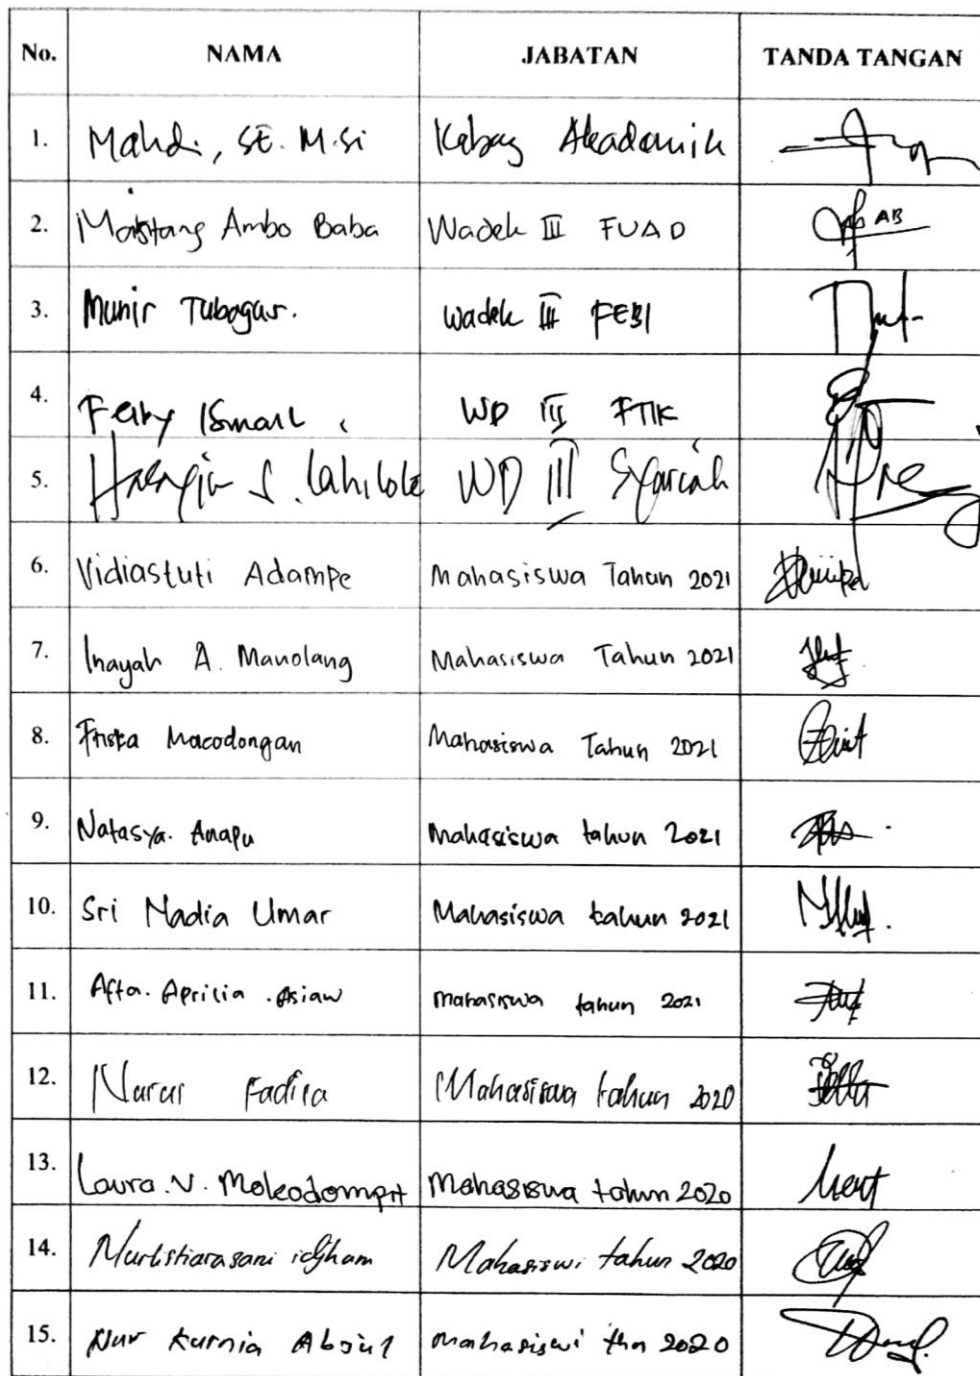 No. NAMA JABATAN TANDA TANGAN
1. Mahdi, SE. M.Si Kabag Akademik
2. Mastang Ambo Baba Wadek III FUAD AB
3. Munir Tubagus. Wadek III FEBI
4. Feiby Ismail WD III FTIK
5. S. Lahilote WD III Syariah
6. Vidiastuti Adampe Mahasiswa Tahun 2021
7. Inayah A. Manolang Mahasiswa Tahun 2021
8. Friska Macodongan Mahasiswa Tahun 2021
9. Natasya. Anapu Mahasiswa tahun 2021
10. Sri Nadia Umar Mahasiswa tahun 2021
11. Afta. Aprilia. Asiaw mahasiswa tahun 2021
12. Nurul Fadila Mahasiswa tahun 2020
13. Laura. N. Mokodompit Mahasiswa tahun 2020
14. Nurlistiarasani idgham Mahasiswi tahun 2020
15. Nur Kurnia Abjul mahasiswi thn 2020